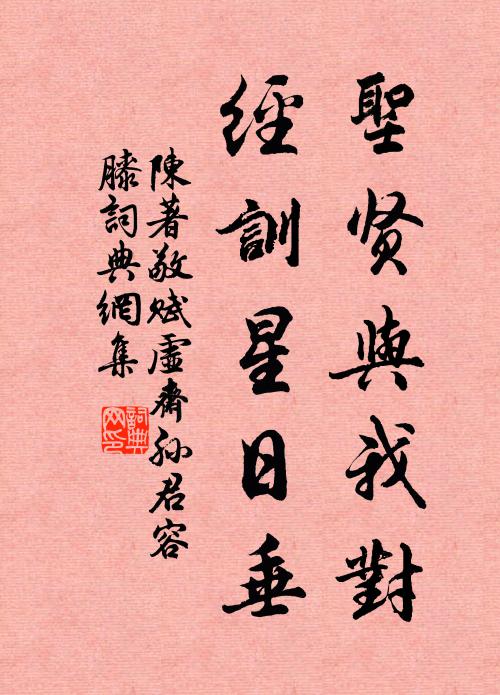 聖贤與我對
經訓星日垂
陳著敬賦虛齋孙君容
滕詞典網集
詞典网印